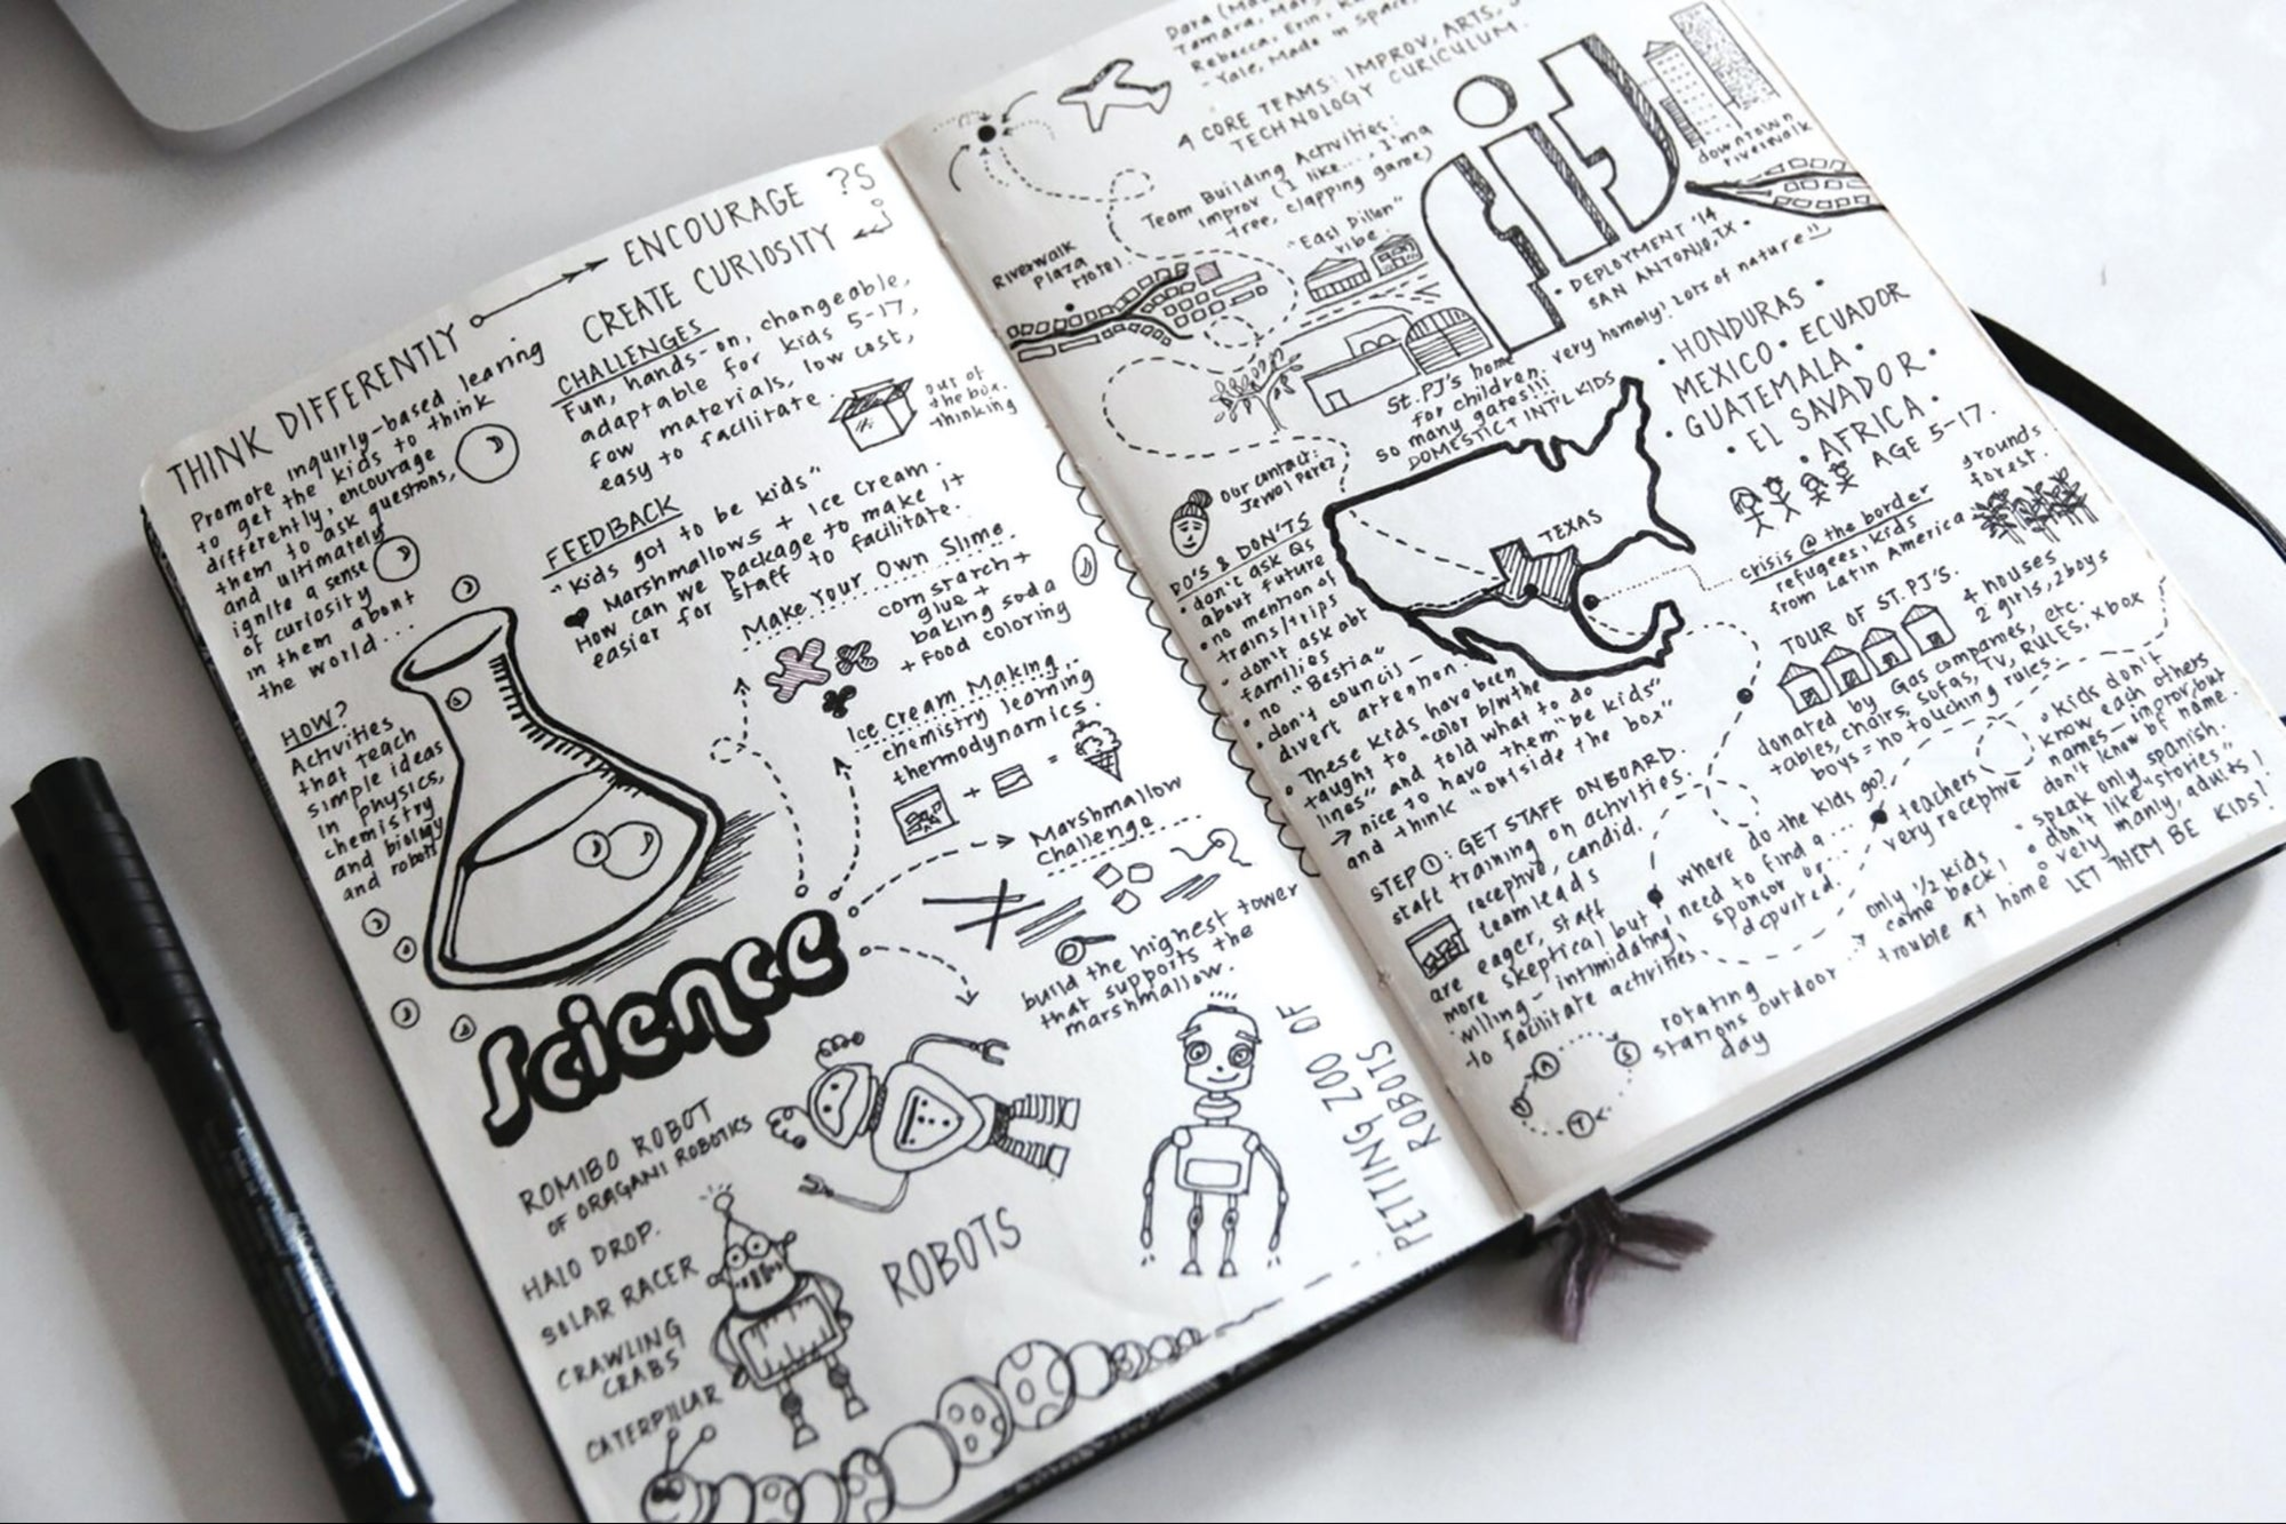 THINK DIFFERENTLY
ENCOURAGE ?S
CREATE CURIOSITY
Promote inquirly-based learing
to get the kids to think
differently, encourage
them to ask questions,
and ultimately
ignite a sense
of curiosity
in them about
the world...
HOW?
Activities
that teach
simple ideas
in physics,
chemistry
and biology
and robotic
CHALLENGES
Fun, hands-on, changeable,
adaptable for kids 5-17,
few materials, low cost,
easy to facilitate.
out of
the box
thinking
FEEDBACK
"Kids got to be kids"
Marshmallows + Ice cream.
How can we package to make it
easier for staff to facilitate.
Make Your Own Slime
corn starch +
glue +
baking soda
+ food coloring
Ice Cream Making
chemistry learning
thermodynamics.
+ =
Marshmallow
Challenge
build the highest tower
that supports the
marshmallow.
Science
ROMIBO ROBOT
OF ORAGANI ROBOTICS
HALO DROP.
SOLAR RACER
CRAWLING
CRABS
CATERPILLAR
ROBOTS
PETTING ZOO OF
ROBOTS
Dara
Tamara, Mary
Rebecca, Erin,
- Yale, Made in Space,
4 CORE TEAMS: IMPROV, ARTS,
TECHNOLOGY CURICULUM.
Team Building Activities:
Improv (I like..., I'm a
tree, clapping game)
"East Dillon"
vibe.
Riverwalk
Plaza
Hotel.
downtown
riverwalk
• DEPLOYMENT '14
SAN ANTONIO, TX •
very homely! Lots of nature!!
St. PJ's home
for children.
so many gates!!!
DOMESTIC + INT'L KIDS
• HONDURAS •
MEXICO • ECUADOR
• GUATEMALA •
• EL SAVADOR •
• AFRICA •
AGE 5-17.
grounds
forest.
Our contact:
Jewel Perez
TEXAS
crisis @ the border
refugees, kids
from Latin America
DO'S & DON'TS
• don't ask Qs
about future
• no mention of
trains/trips
- don't ask abt
families
• no "Bestia"
• don't council -
divert attention.
• These kids have been
taught to "color b/w the
lines" and told what to do
→ nice to have them "be kids"
and think "outside the box"
TOUR OF ST. PJ'S.
4 houses
2 girls, 2 boys
donated by Gas companies, etc.
tables, chairs, sofas, TV, RULES, Xbox
boys = no touching rules
STEP 1: GET STAFF ONBOARD.
staff training on activities.
receptive, candid.
teamleads
are eager, staff
more skeptical but
willing - intimidating
to facilitate activities.
where do the kids go?
need to find a
sponsor or...
deported.
teachers
very receptive
• kids don't
know each others
names - improv, but
don't know bf name.
• speak only spanish.
• don't like "stories"
• very manly, adults!
LET THEM BE KIDS!
only 1/2 kids
came back!
trouble at home
rotating
stations outdoor
day
A
S
T